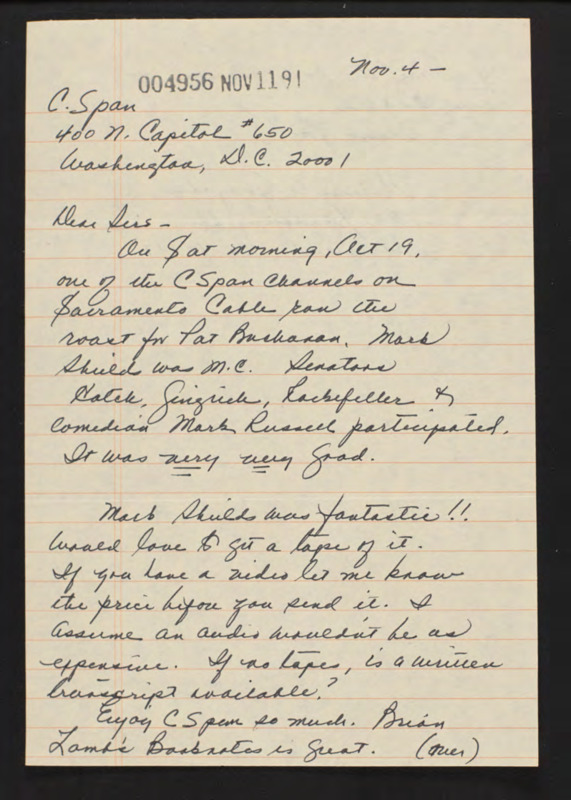 Nov. 4 –
004956 NOV 11 91
C. Span
400 N. Capitol #650
Washington, D.C. 20001
Dear Sirs –
On Sat morning, Oct 19,
one of the C Span channels on
Sacramento Cable ran the
roast for Pat Buchanan. Mark
Shields was M.C. Senators
Hatch, Gingrich, Rockefeller &
comedian Mark Russell participated.
It was very very good.
Mark Shields was fantastic!!
Would love to get a tape of it.
If you have a video let me know
the price before you send it. I
assume an audio wouldn't be as
expensive. If no tapes, is a written
transcript available?
Enjoy C Span so much. Brian
Lamb's Booknotes is great. (over)